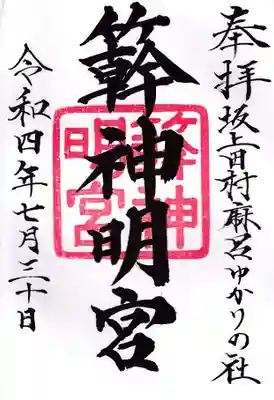 奉拝 坂上田村麻呂ゆかりの社
簳神明宮
令和四年七月三十日
簳神
明宮